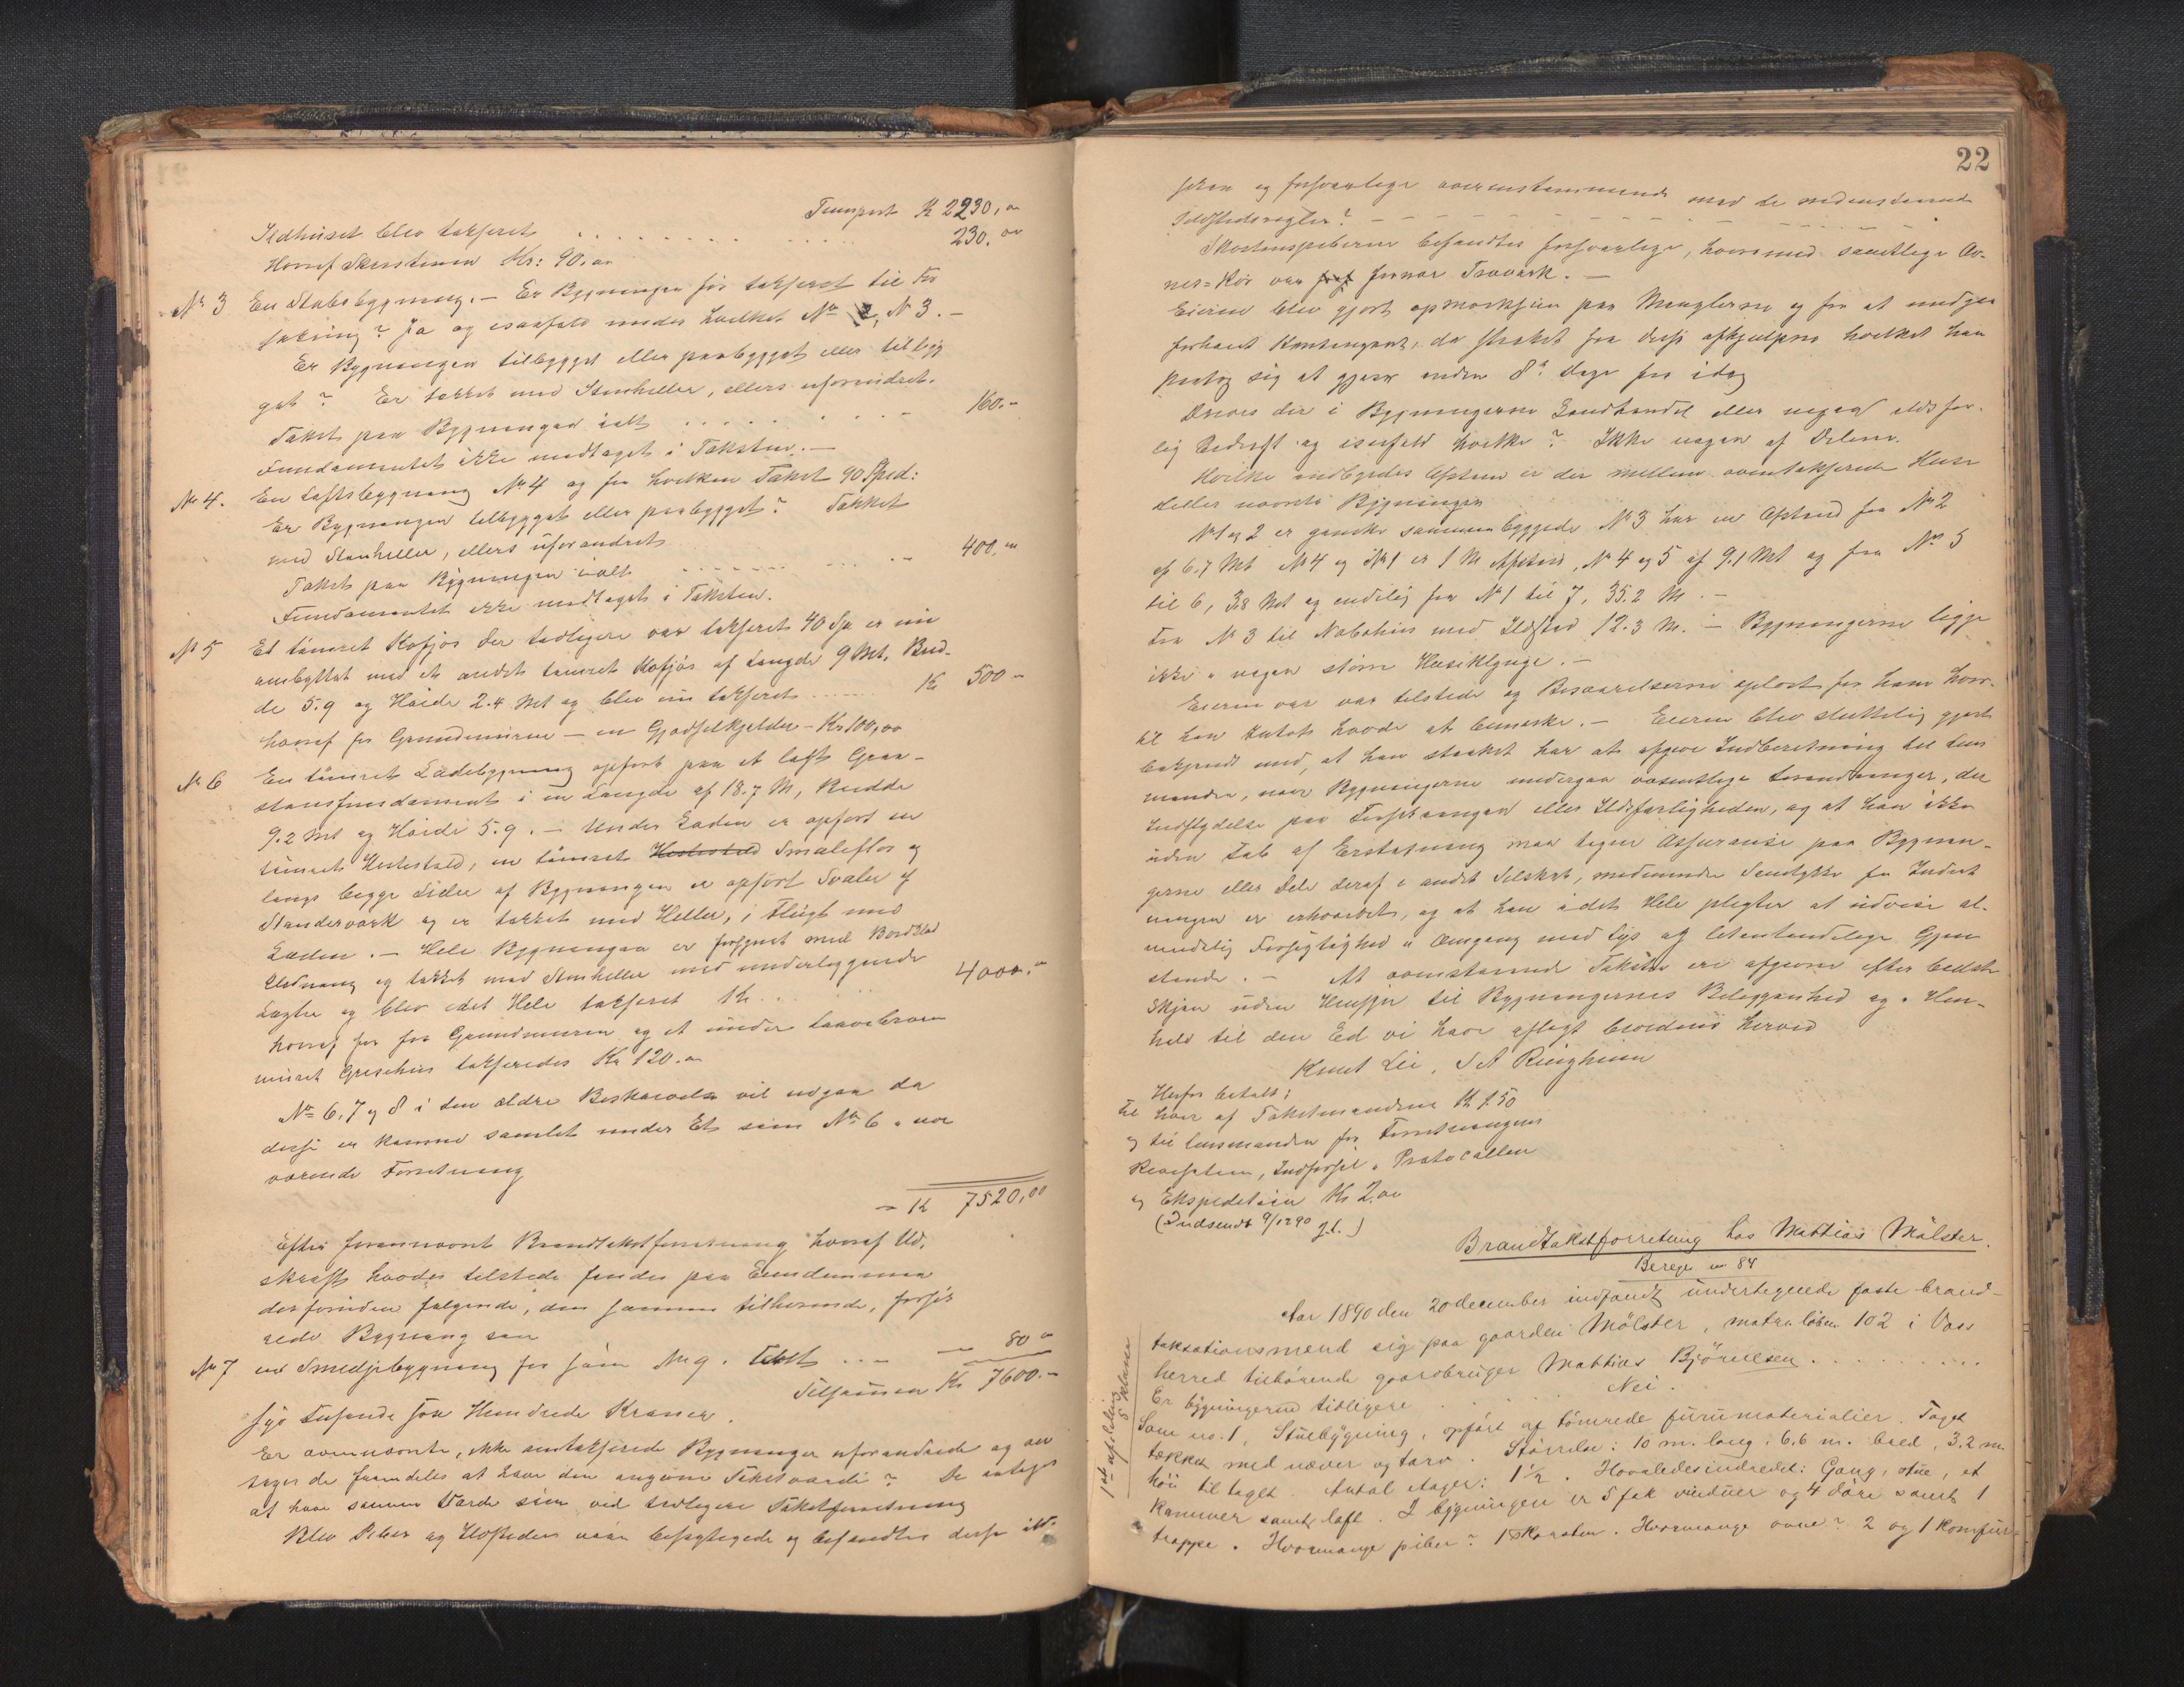 Transport K 2230,00
Ildhuset blev takseret . . . . . . . . . . . 230.00
Horraf Skorstenen Kr: 90.00
No 3 En Stabsbygning. – Er Bygningen før takseret til For
sikring? Ja og isaafald under hvilket No 3. –
Er Bygningen tilbygget eller paabygget eller tillig
get? Er tækket med Stenheller, ellers uforandret.
Takst paa Bygningen ialt . . . . . 160.–
Fundamentet ikke medtaget i Taksten. –
No 4. En Loftsbygning No 4 og for hvilken Takst 90 Spd:
Er Bygningen tilbygget eller paabygget? Tækket
med Stenheller, ellers uforandret
Takst paa Bygningen ialt . . . . . 400.00
Fundamentet ikke medtaget i Taksten.
No 5 Et tømret Kofjøs der tidligere var takseret 40 Sp er nu
ombyttet med et andet tømret Kofjøs af Længde 9 Mt. Bred-
de 5.9 og Høide 2.4 Mt og blev nu takseret . . . . K 500 –
horraf for Grundmuren – en Gjødselkjelder – Kr 100,00
No 6 En tømret Ladebygning opført paa et lafts Graa-
stensfundament i en Længde af 18.7 M, Bredde
9.2 Mt og Høide 5.9. – Under Laden er opført en
tømret Hestestald, en tømret Smalefløs og
langs begge Sider af Bygningen er opført Svaler af
Standerværk og er tækket med Heller, i Flugt med
Laden. – Hele Bygningen er forsynet med Bordklæd
klædning og tækket med Stenheller med underliggende
Lægter og blev idet Hele takseret K . . . 4000.00
horraf for Grundmuren og et under Laavebroen
muret Grisehus takseredes Kr 120.00
No 6, 7 og 8 i den ældre Beskrivelse vil udgaa da
disse er komne samlet under Et som No 6 i nær
værende Forretning
– K 7520,00
Efter forannævnt Brandtakstforretning, horraf Ud,
skrift havdes tilstede fandes paa Eiendommen
desforuden følgende, den samme tilhørende, forsik
rede Bygning som
No 7 en Smedjebygning før som No 9. Takst . . . – 80 00
Tilsammen Kr 7600.–
syv Tusende sex Hundrede Kroner.
Er ovennævnte, ikke omtakserede Bygninger uforandrede og an
tages de fremdeles at have den angivne Takstværdi? De antages
at have samme Værdi som ved tidligere Takstforretning
Blev Piber og Ildsteder nøie besigtigede og befandtes disse ild-
22
sikre og forsvarlige overensstemmende med de nedenstaaende
Ildstedsregler? – – – – – – – – –
Skorstenspiberne befandtes forsvarlige, hvorimod samtlige Ov-
nes-Rør var for nær Træværk. –
Eieren blev gjort opmærksom paa Manglerne og for at undgaa
forhøiet Kontingent, da straks faa disse afhjulpne hvilket han
paatog sig at gjøre inden 8te Dage fra idag
Drives der i Bygningerne Landhandel eller nogen ildsfar-
lig Bedrift og isaafald hvilke? Ikke nogen af Delene.
Hvilke indbyrdes Afstan er der mellem omtakserede Huse
eller nævnte Bygninger
No 1 og 2 er ganske sammenbyggede No 3 har en Afstand fra No 2
af 6.7 Mt No 4 og No 1 er 1 M Afstan, No 4 og 5 af 9.1 Mt og fra No 5
til 6, 3.8 Mt og endelig fra No 1 til 7, 35.2 M. –
Fra No 3 til Nabohus med Ildsted 12.3 M. – Bygningerne ligge
ikke i nogen større Huseklynge. –
Eieren var tilstede og Besvarelserne oplæst for ham hvor-
til han Intet havde at bemærke. – Eieren blev sluttelig gjort
bekjendt med, at han straks har at afgive Indberetning til Lens
manden, naar Bygningerne undergaa væsentlige Forandringer, der
Indflydelse paa Forsikringen eller Ildsfarligheden, og at han ikke
uden Tab af Erstatning maa tegne Assuranse paa Bygnin-
gerne eller Dele deraf i andet Selskab, medmindre Samtykke fra Indret
ningen er erhvervet, og at han i det Hele pligter at udvise al-
mindelig Forsigtighed i Omgang med Lys og letantændelige Gjen
stande. – At ovenstaaende Takster ere afgivne efter bedste
Skjøn uden Hensyn til Bygningernes Beliggenhed og i Hen-
hold til den Ed vi have aflagt bevidnes herved
Knut Lei, S A Ringheim
Herfor betalt:
til hver af Takstmændene K 1.50
og til lensmanden for Forretningens
Revisation, Indførsel i Protocollen
og Ekspedition Kr 2.00
(Indsendt 9/12 90 J.L.)
Brandtakstforretning hos Mattias Mølster.
Bereg. no 84
1ste afdeling
5 klasse
Aar 1890 den 20 december indfandt undertegnede faste brand-
taksationsmænd sig paa gaarden Mølster, matr. løbeno 102 i Voss
herred tilhørende gaardbruger Mattias Bjørnesen. . . . . . . . .
Er bygningerne tidligere . . . . Nei.
Som no. 1, Stuebygning, opført af tømrede furumaterialier. Taget
tækket med næver og tørv. Størrelse: 10 m. lang, 6,6 m. bred, 3.2 m.
høi til taget. Antal etager: 1½. Hvorledes indredet: Gang, stue, et
kammer samt loft. I bygningen er 5 fak vinduer og 4 døre samt 1
trappe. Hvormange piber? 1 Skorsten. Hvormange ovne? 2 og 1 Komfur-